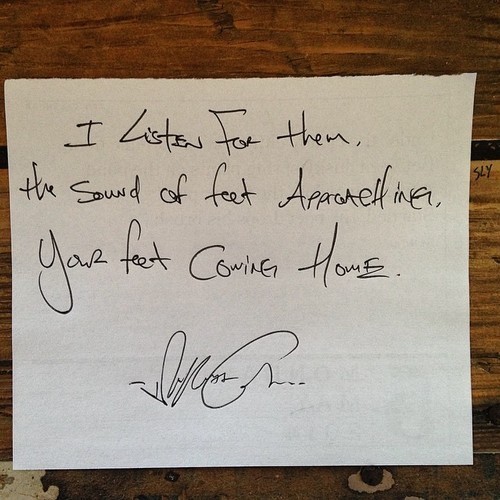 I Listen For them.
the sound of feet Approaching.
Your feet Coming Home.
SLY